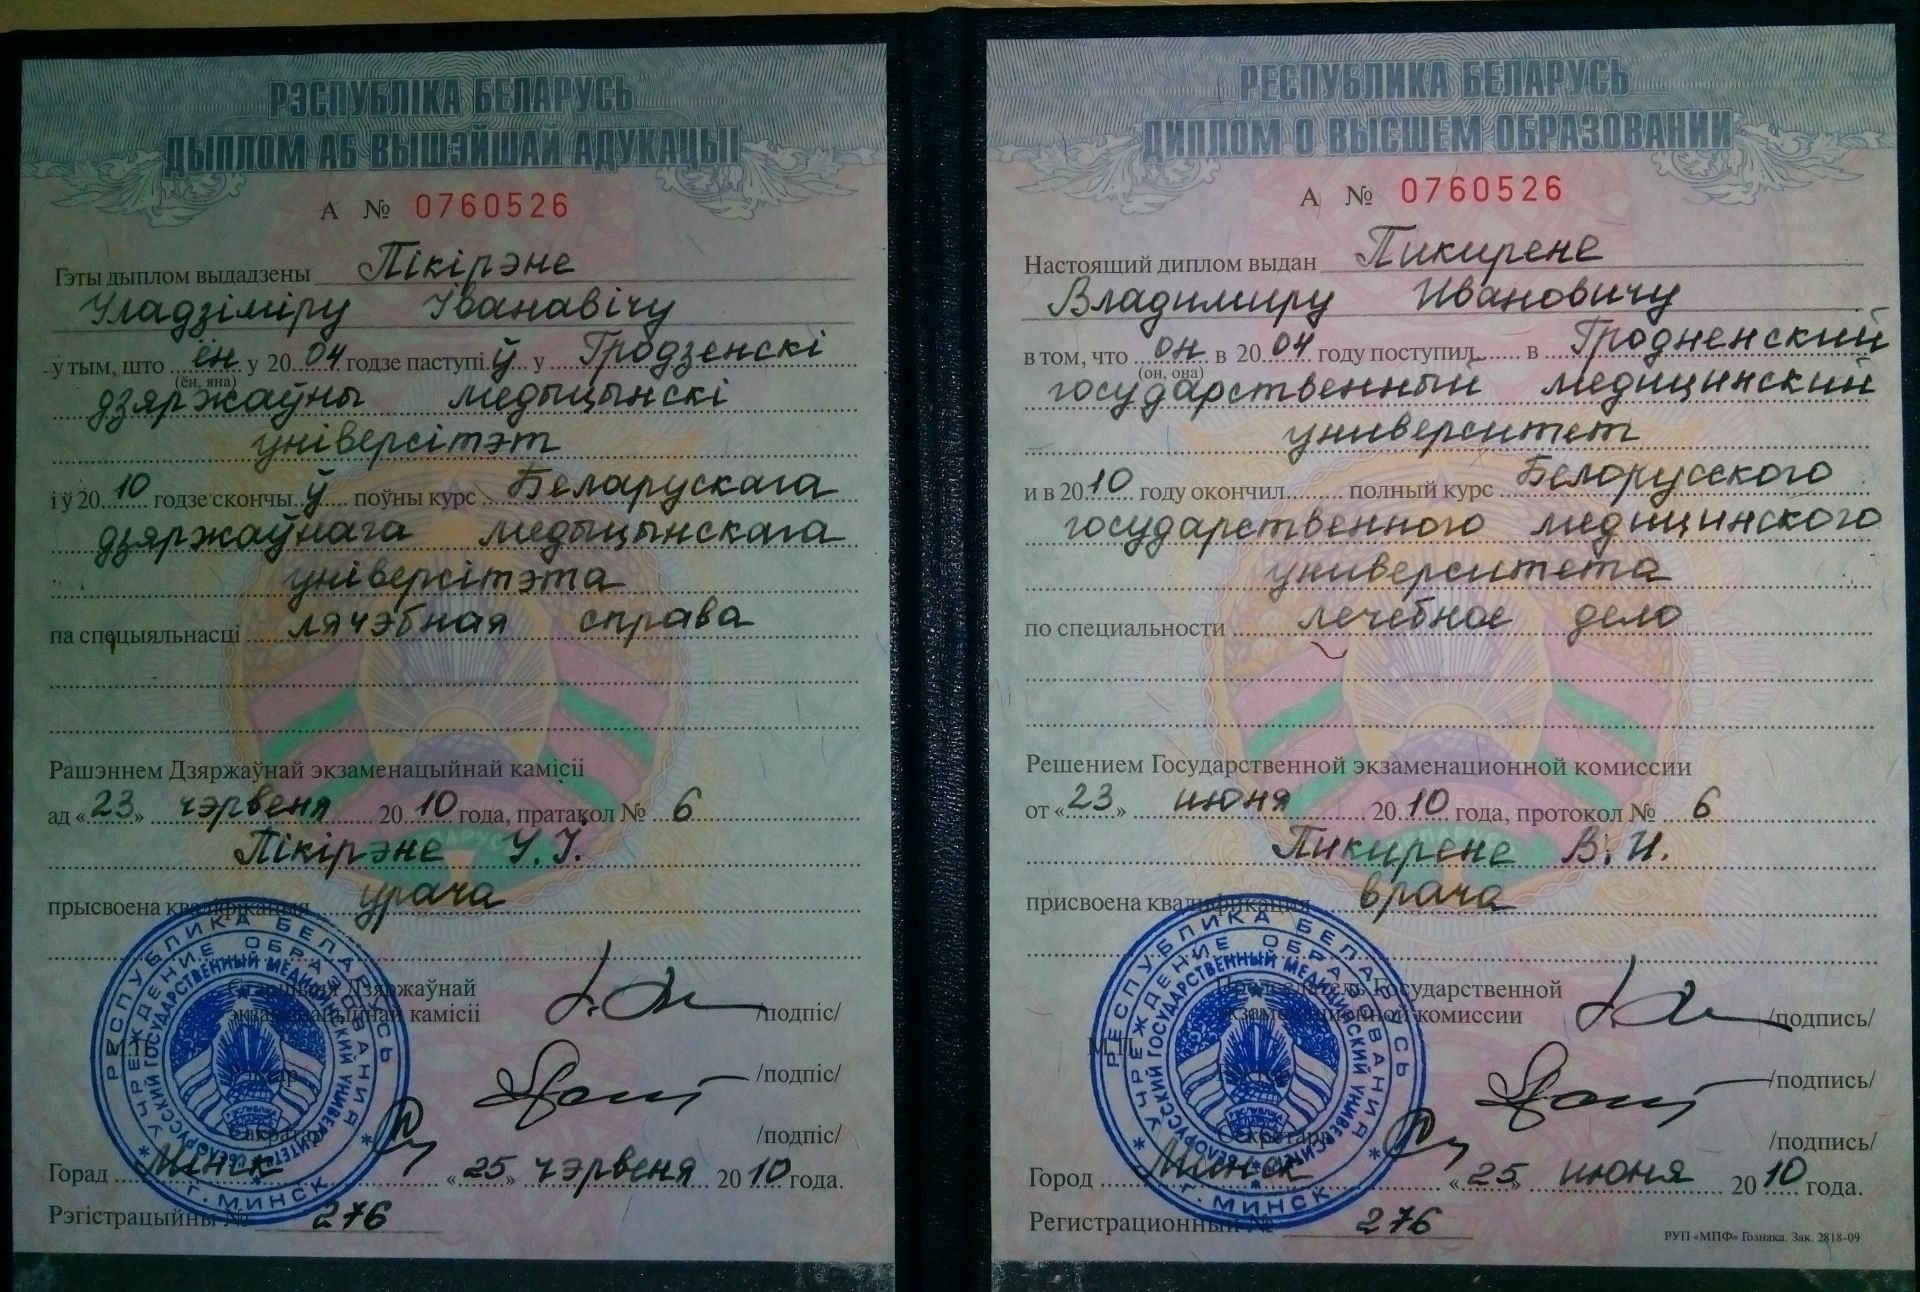 РЭСПУБЛІКА БЕЛАРУСЬ
ДЫПЛОМ АБ ВЫШЭЙШАЙ АДУКАЦЫІ
А № 0760526
Гэты дыплом выдадзены Пікірэне
Уладзіміру Іванавічу
у тым, што ён у 2004 годзе паступіў у Гродзенскі
(ён, яна)
дзяржаўны медыцынскі
універсітэт
і ў 2010 годзе скончыў поўны курс Беларускага
дзяржаўнага медыцынскага
універсітэта
па спецыяльнасці лячэбная справа
Рашэннем Дзяржаўнай экзаменацыйнай камісіі
ад «23» чэрвеня 2010 года, пратакол № 6
Пікірэне У.І.
прысвоена кваліфікацыя урача
Старшыня Дзяржаўнай
экзаменацыйнай камісіі /подпіс/
М.П.
Рэктар /подпіс/
Сакратар /подпіс/
Горад Мінск «25» чэрвеня 2010 года.
Рэгістрацыйны № 276
РЕСПУБЛИКА БЕЛАРУСЬ
УЧРЕЖДЕНИЕ ОБРАЗОВАНИЯ
БЕЛОРУССКИЙ ГОСУДАРСТВЕННЫЙ МЕДИЦИНСКИЙ УНИВЕРСИТЕТ
г. МИНСК
РЕСПУБЛИКА БЕЛАРУСЬ
ДИПЛОМ О ВЫСШЕМ ОБРАЗОВАНИИ
А № 0760526
Настоящий диплом выдан Пикирене
Владимиру Ивановичу
в том, что он в 2004 году поступил в Гродненский
(он, она)
государственный медицинский
университет
и в 2010 году окончил полный курс Белорусского
государственного медицинского
университета
по специальности лечебное дело
Решением Государственной экзаменационной комиссии
от «23» июня 2010 года, протокол № 6
Пикирене В.И.
присвоена квалификация врача
Председатель Государственной
экзаменационной комиссии /подпись/
М.П.
Ректор /подпись/
Секретарь /подпись/
Город Минск «25» июня 2010 года.
Регистрационный № 276
РУП «МПФ» Гознака. Зак. 2818-09
РЕСПУБЛИКА БЕЛАРУСЬ
УЧРЕЖДЕНИЕ ОБРАЗОВАНИЯ
БЕЛОРУССКИЙ ГОСУДАРСТВЕННЫЙ МЕДИЦИНСКИЙ УНИВЕРСИТЕТ
г. МИНСК